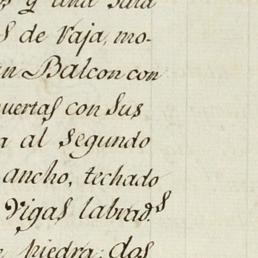 s y una sala
s de vaja, mo-
un Balcon con
puertas con sus
a al segundo
ancho, techado
Vigas labrad.s
piedra: dos